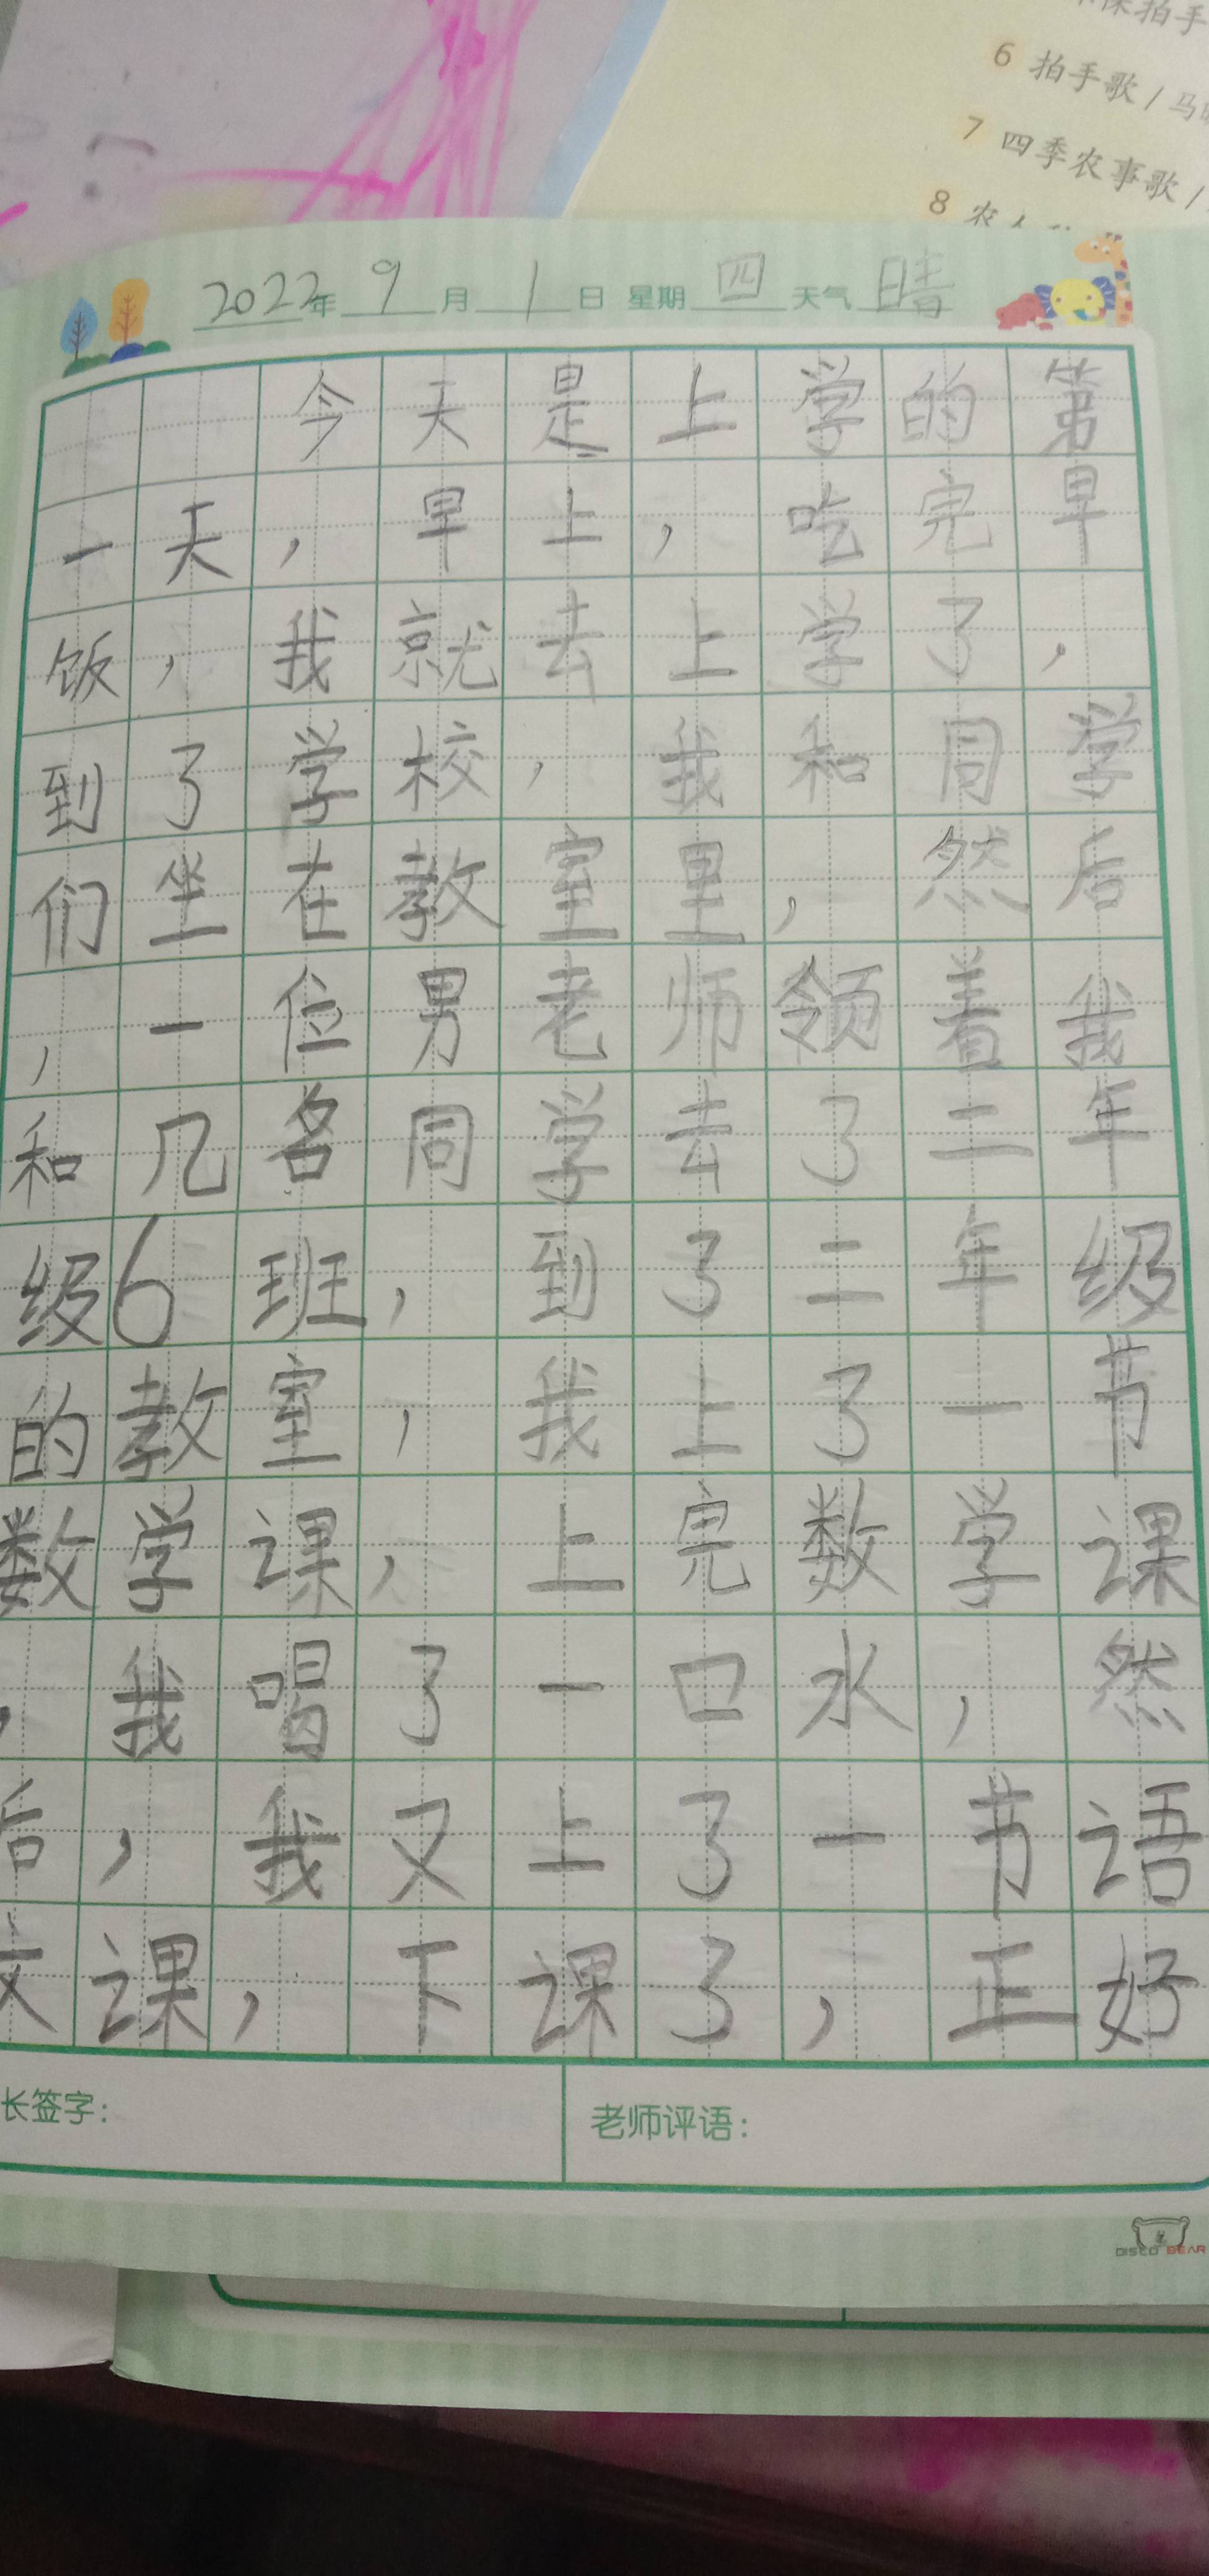 拍手
6 拍手歌/马
7 四季农事歌/
8 农
2022年 9 月 1 日 星期 四 天气 晴
今天是上学的第
一天，早上，吃完早
饭，我就去上学了，
到了学校，我和同学
们坐在教室里，然后
，一位男老师领着我
和几名同学去了二年
级6班，到了二年级
的教室，我上了一节
数学课，上完数学课
，我喝了一口水，然
后，我又上了一节语
文课，下课了，正好
长签字：
老师评语：
DISCO BEAR